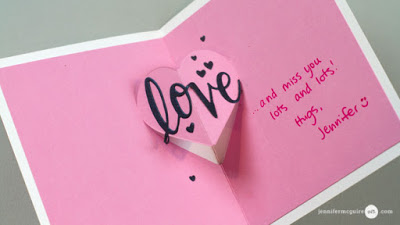 love
...and miss you
lots and lots!
Hugs,
Jennifer
jennifermcguireink.com